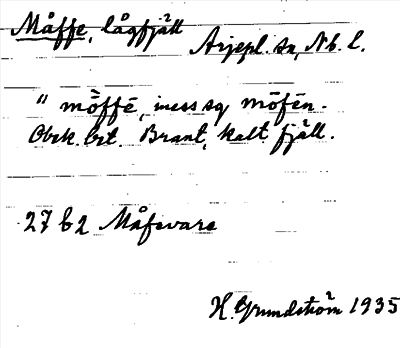 Måffe, lågfjäll
Arjepl. sn, Nb. l.
" mȯ̀ffē, iness sg mōfēn.
Obek. bet. Brant, kalt fjäll.
27 b 2 Måfevare
H. Grundström 1935